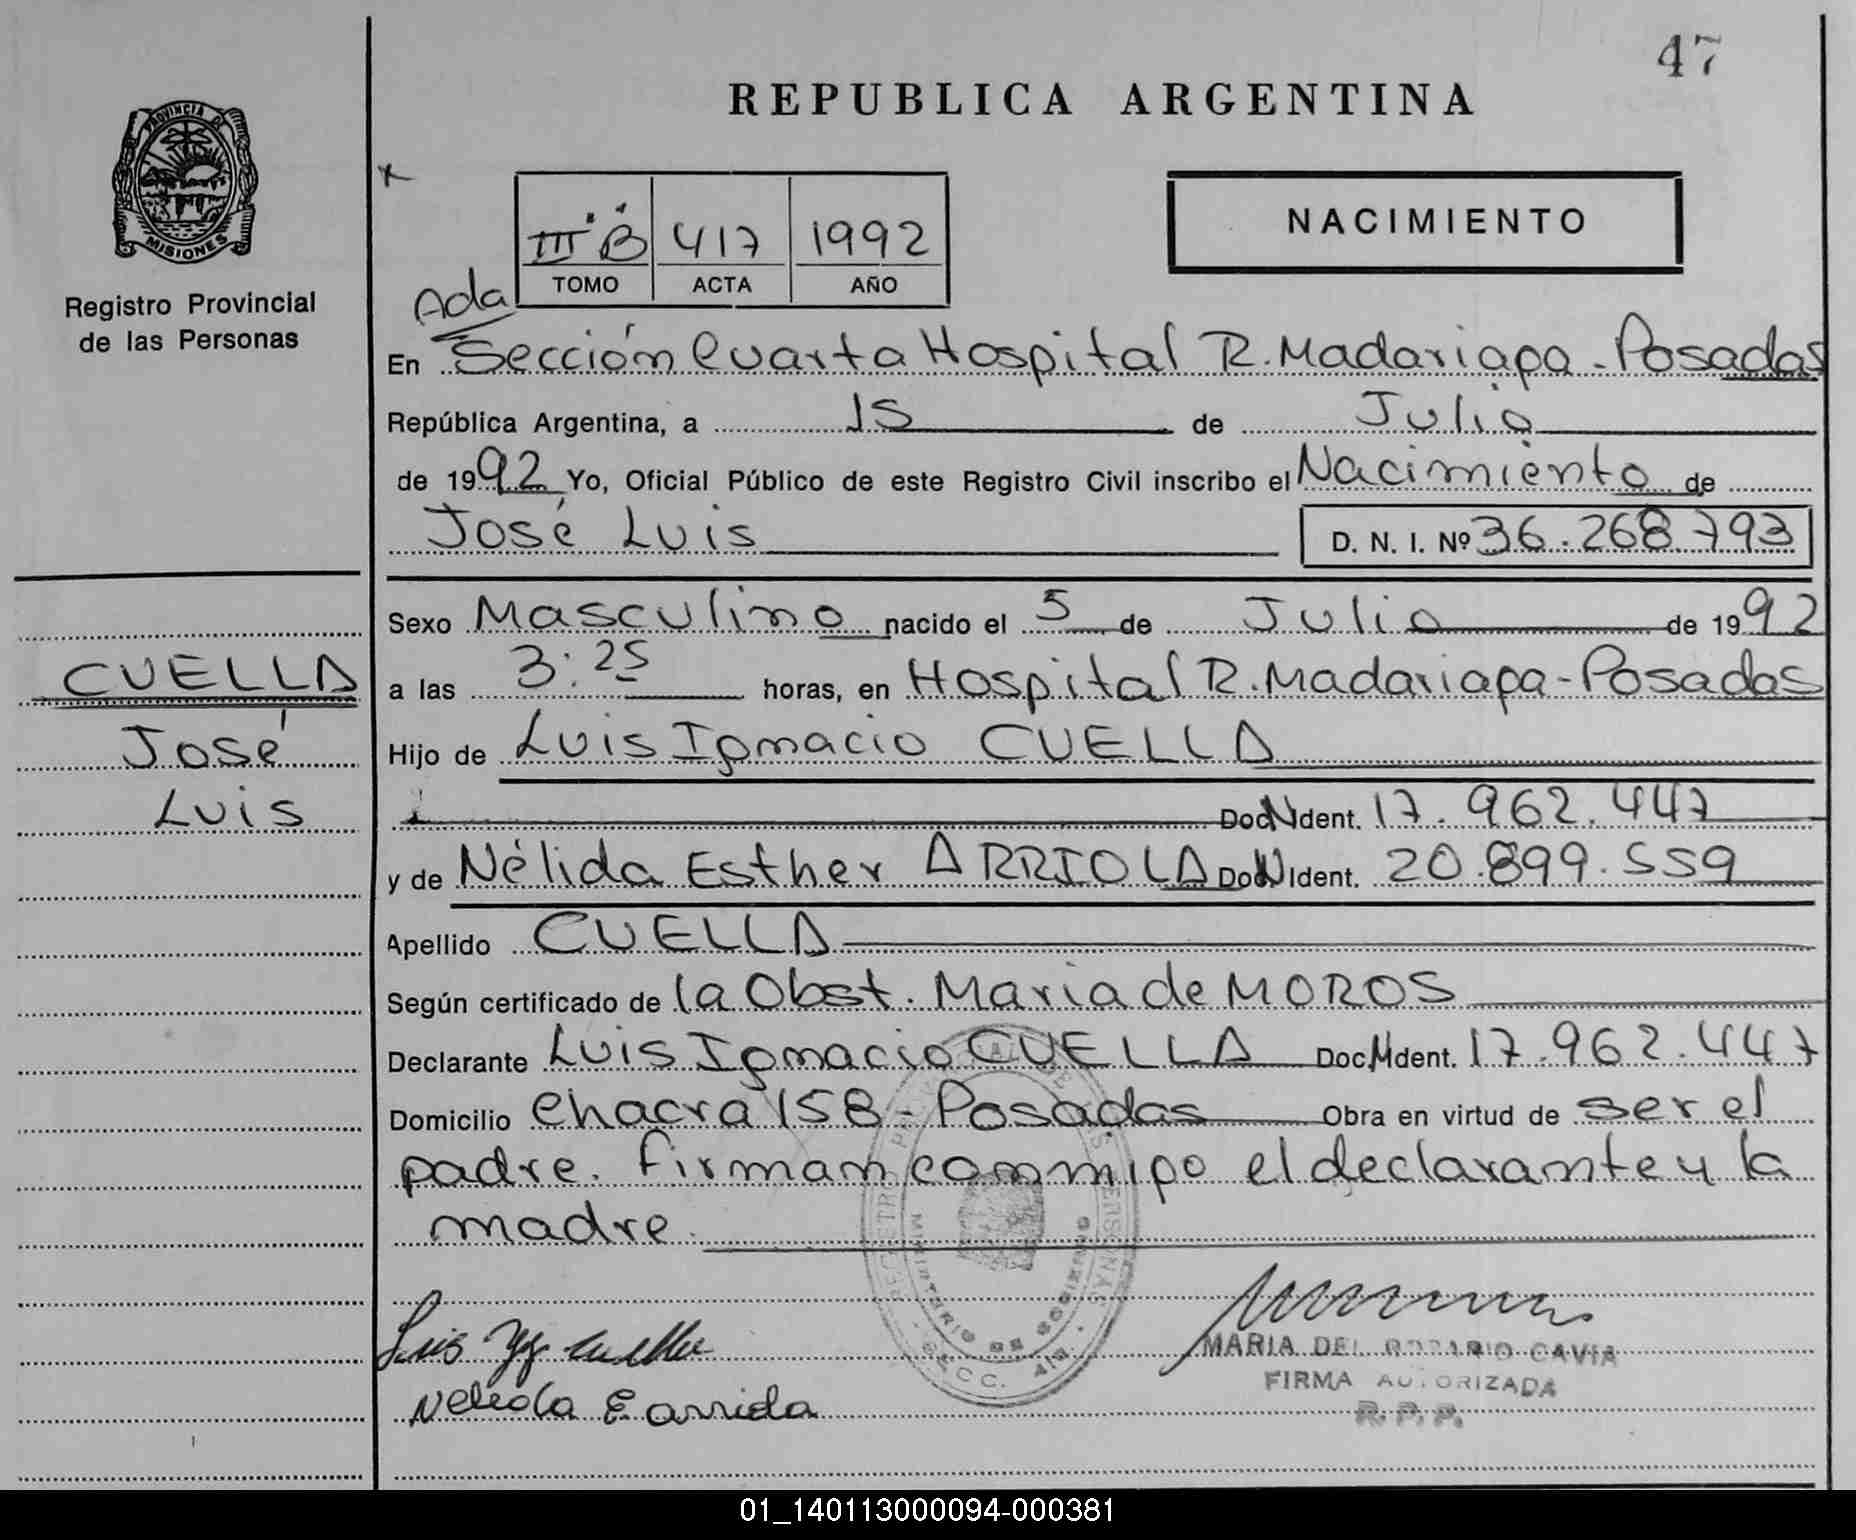 47
REPUBLICA ARGENTINA
PROVINCIA DE
MISIONES
Registro Provincial
de las Personas
III B 417 1992
TOMO ACTA AÑO
NACIMIENTO
Ada
En Sección Cuarta Hospital R. Madariaga - Posadas
República Argentina, a 15 de Julio
de 1992 Yo, Oficial Público de este Registro Civil inscribo el Nacimiento de
José Luis D. N. I. Nº 36.268.793
Sexo Masculino nacido el 5 de Julio de 1992
CUELLA
a las 3:25 horas, en Hospital R. Madariaga - Posadas
José
Hijo de Luis Ignacio CUELLA
Luis
Doc N Ident. 17.962.447
y de Nélida Esther ARRIOLA Doc N Ident. 20.899.559
Apellido CUELLA
Según certificado de la Obst. Maria de MOROS
Declarante Luis Ignacio CUELLA Doc. N Ident. 17.962.447
Domicilio Chacra 158 - Posadas Obra en virtud de ser el
padre. firman conmigo el declarante y la
madre.
REGISTRO PROVINCIAL DE LAS PERSONAS
MINISTERIO DE GOBIERNO
SECC. 4ta
Luis Ig Cuella
MARIA DEL ROSARIO CAVIA
FIRMA AUTORIZADA
R. P. P.
01_140113000094-000381